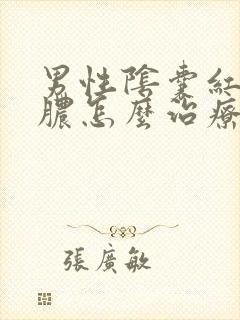 男性陰囊紅
膿怎麼治療
張廣敏